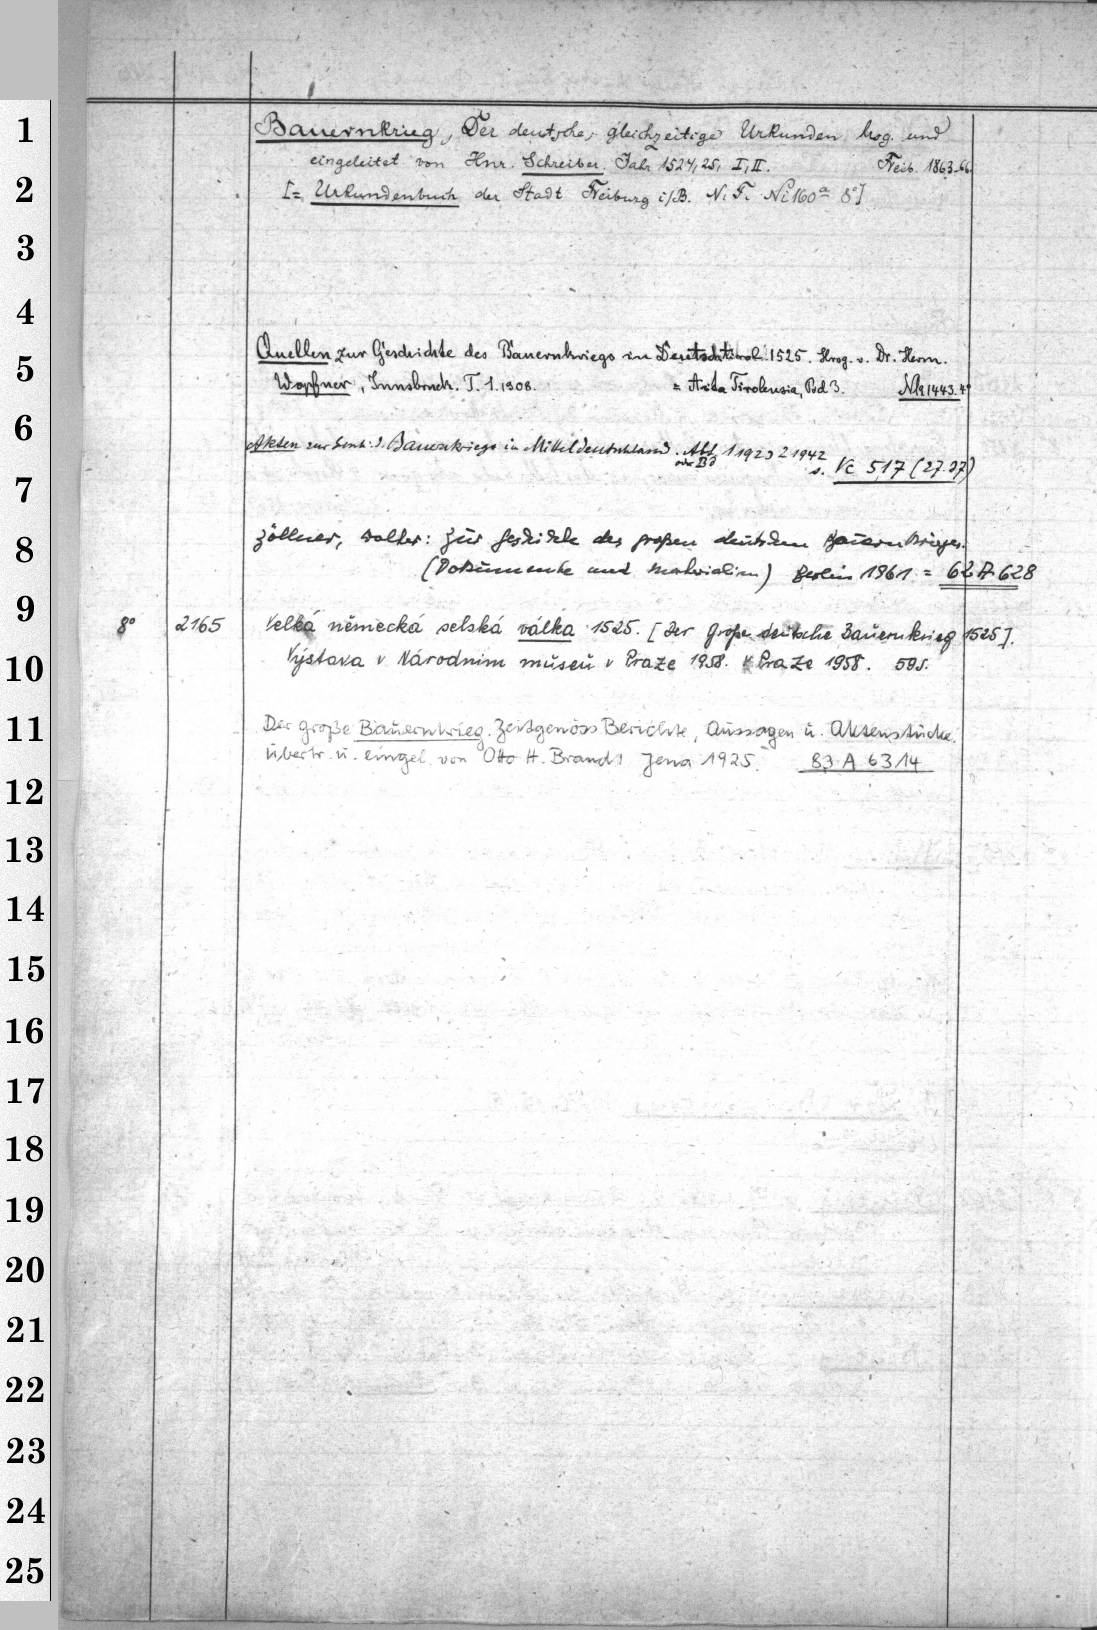 Bauernkrieg, Der deutsche, gleichzeitige Urkunden hsg. und
eingeleitet von Hnr. Schreiber. Jahr 1524, 25, I, II. Freib. 1863-66.
[= Urkundenbuch der Stadt Freiburg i/B. N. F. Ni 160ª 8°]
Quellen zur Geschichte des Bauernkriegs in Deutschtirol 1525. Hrsg. v. Dr. Herm.
Wopfner, Innsbruck. T. 1. 1908. = Acta Tirolensia, Bd 3. 1443. 4°
Akten zur Gesch. d. Bauernkriegs in Mitteldeutschland. Abt. 1 1923 2 1942
oder Bd s. Vc 517 (27.37)
Zöllner, Walter: Zur Geschichte des großen deutschen Bauernkrieges.
(Dokumente und Materialien) Berlin 1961 = 62 A 628
8° 2165 Velká německá selská válka 1525. [Der Große deutsche Bauernkrieg 1525].
Výstava v Národním museu v Praze 1958. V Praze 1958. 59 s.
Der große Bauernkrieg. Zeitgenöss Berichte, Aussagen u. Aktenstücke.
übertr. u. eingel. von Otto H. Brandt Jena 1925. 83 A 6314
1
2
3
4
5
6
7
8
9
10
11
12
13
14
15
16
17
18
19
20
21
22
23
24
25